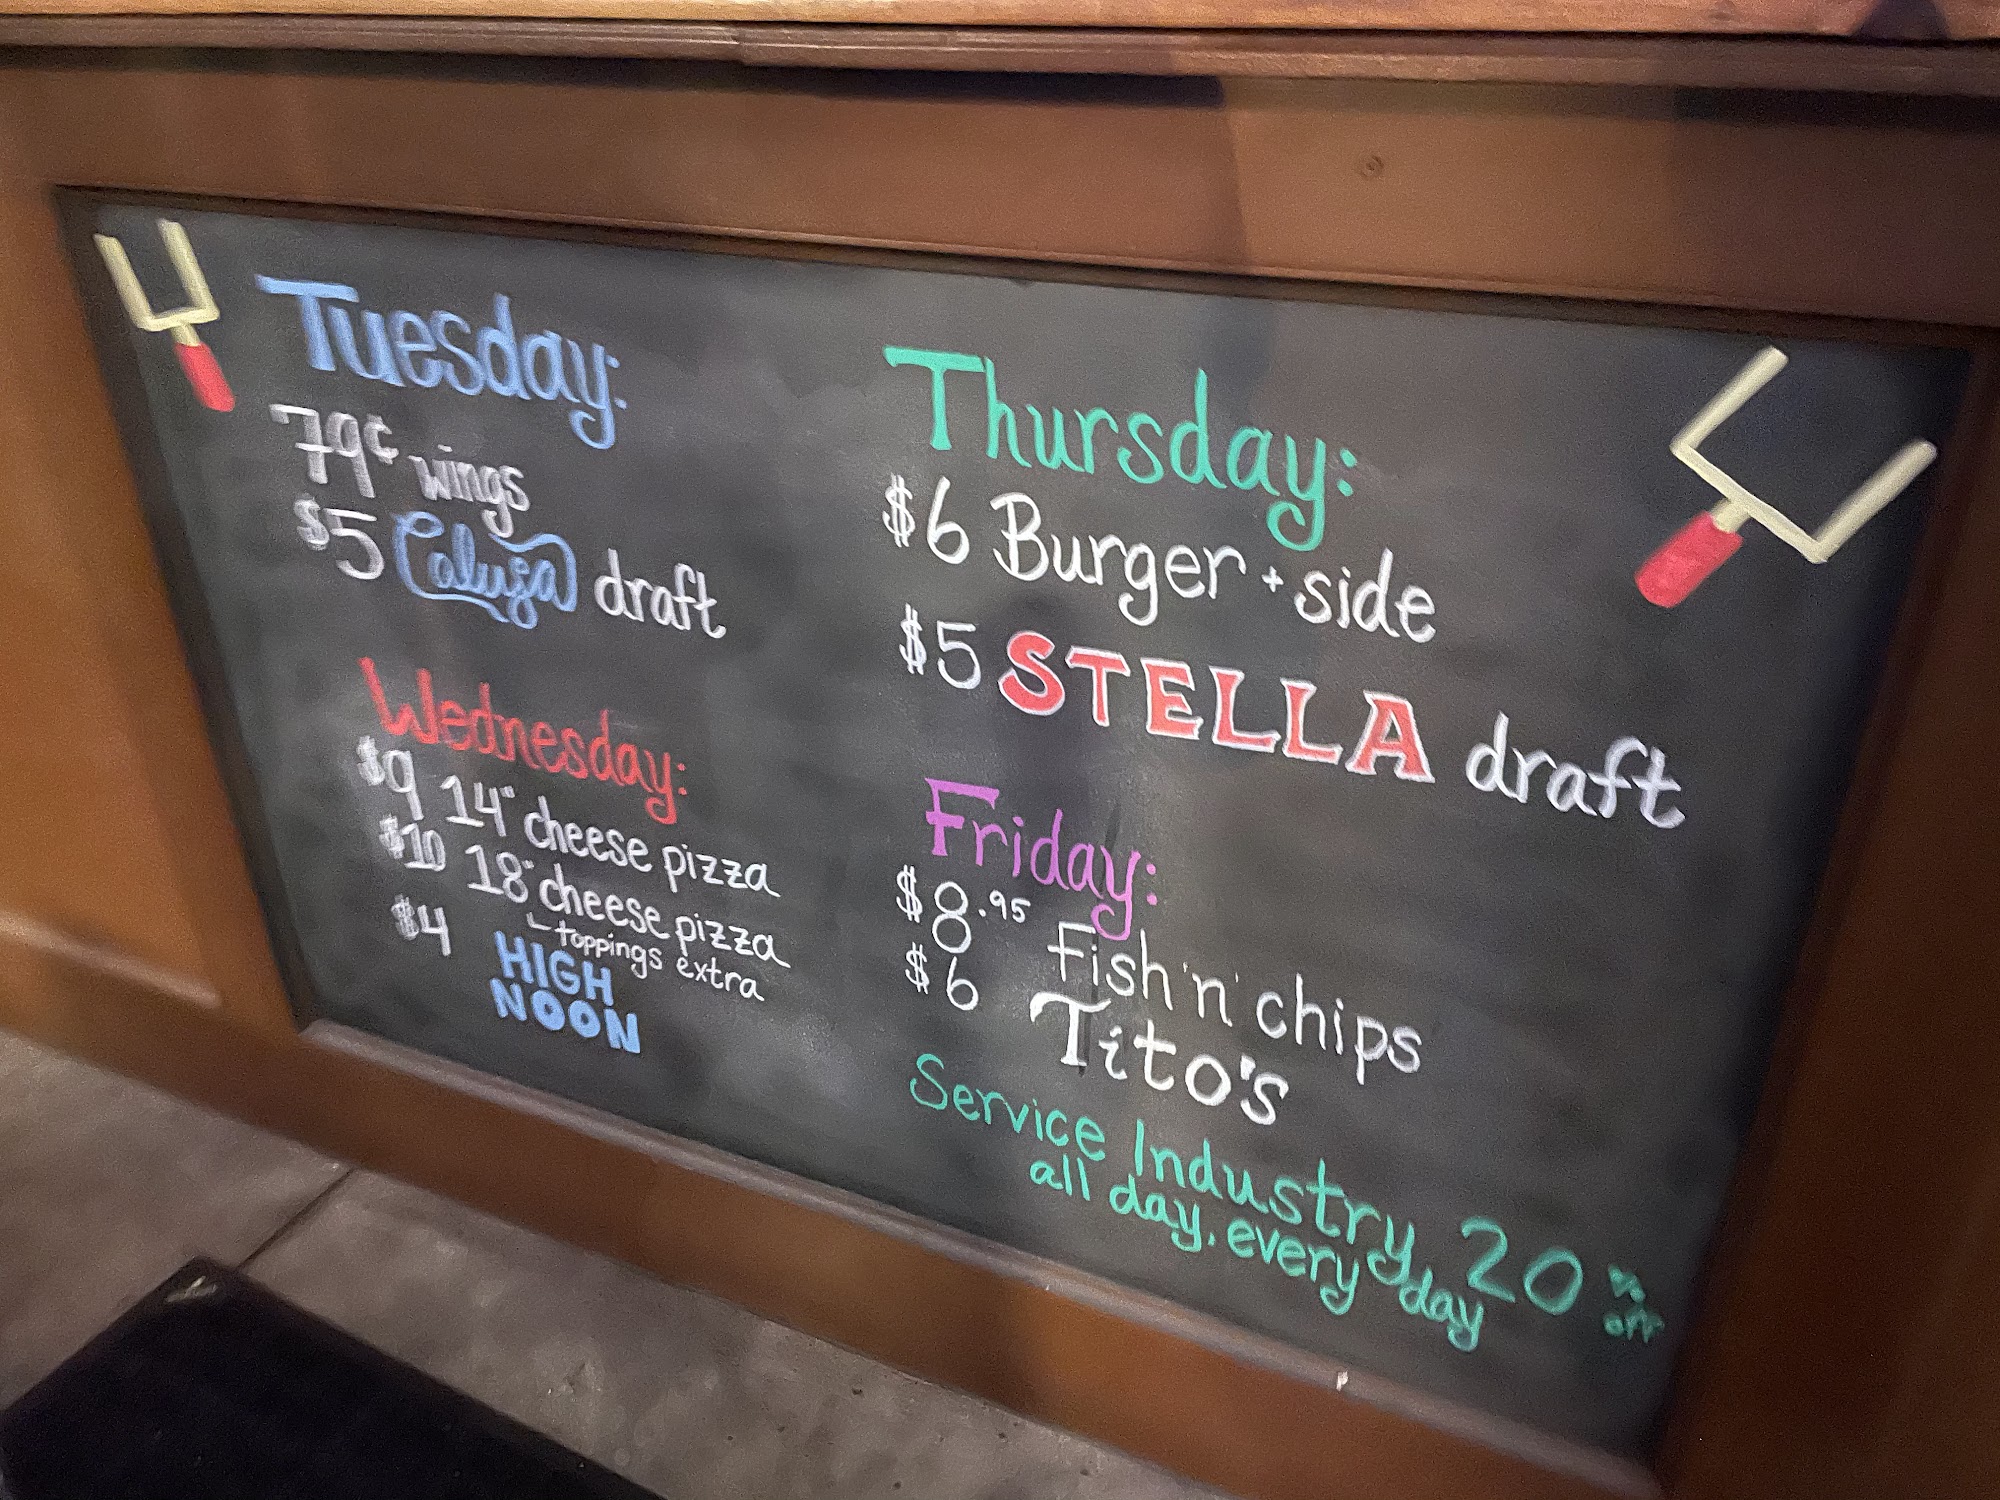 Tuesday:
79¢ wings
$5 Caluza draft
Wednesday:
$9 14" cheese pizza
$10 18" cheese pizza
toppings extra
$4 HIGH
NOON
Thursday:
$6 Burger + side
$5 STELLA draft
Friday:
$8.95 Fish 'n' chips
$6 Tito's
Service Industry 20% off
all day, every day